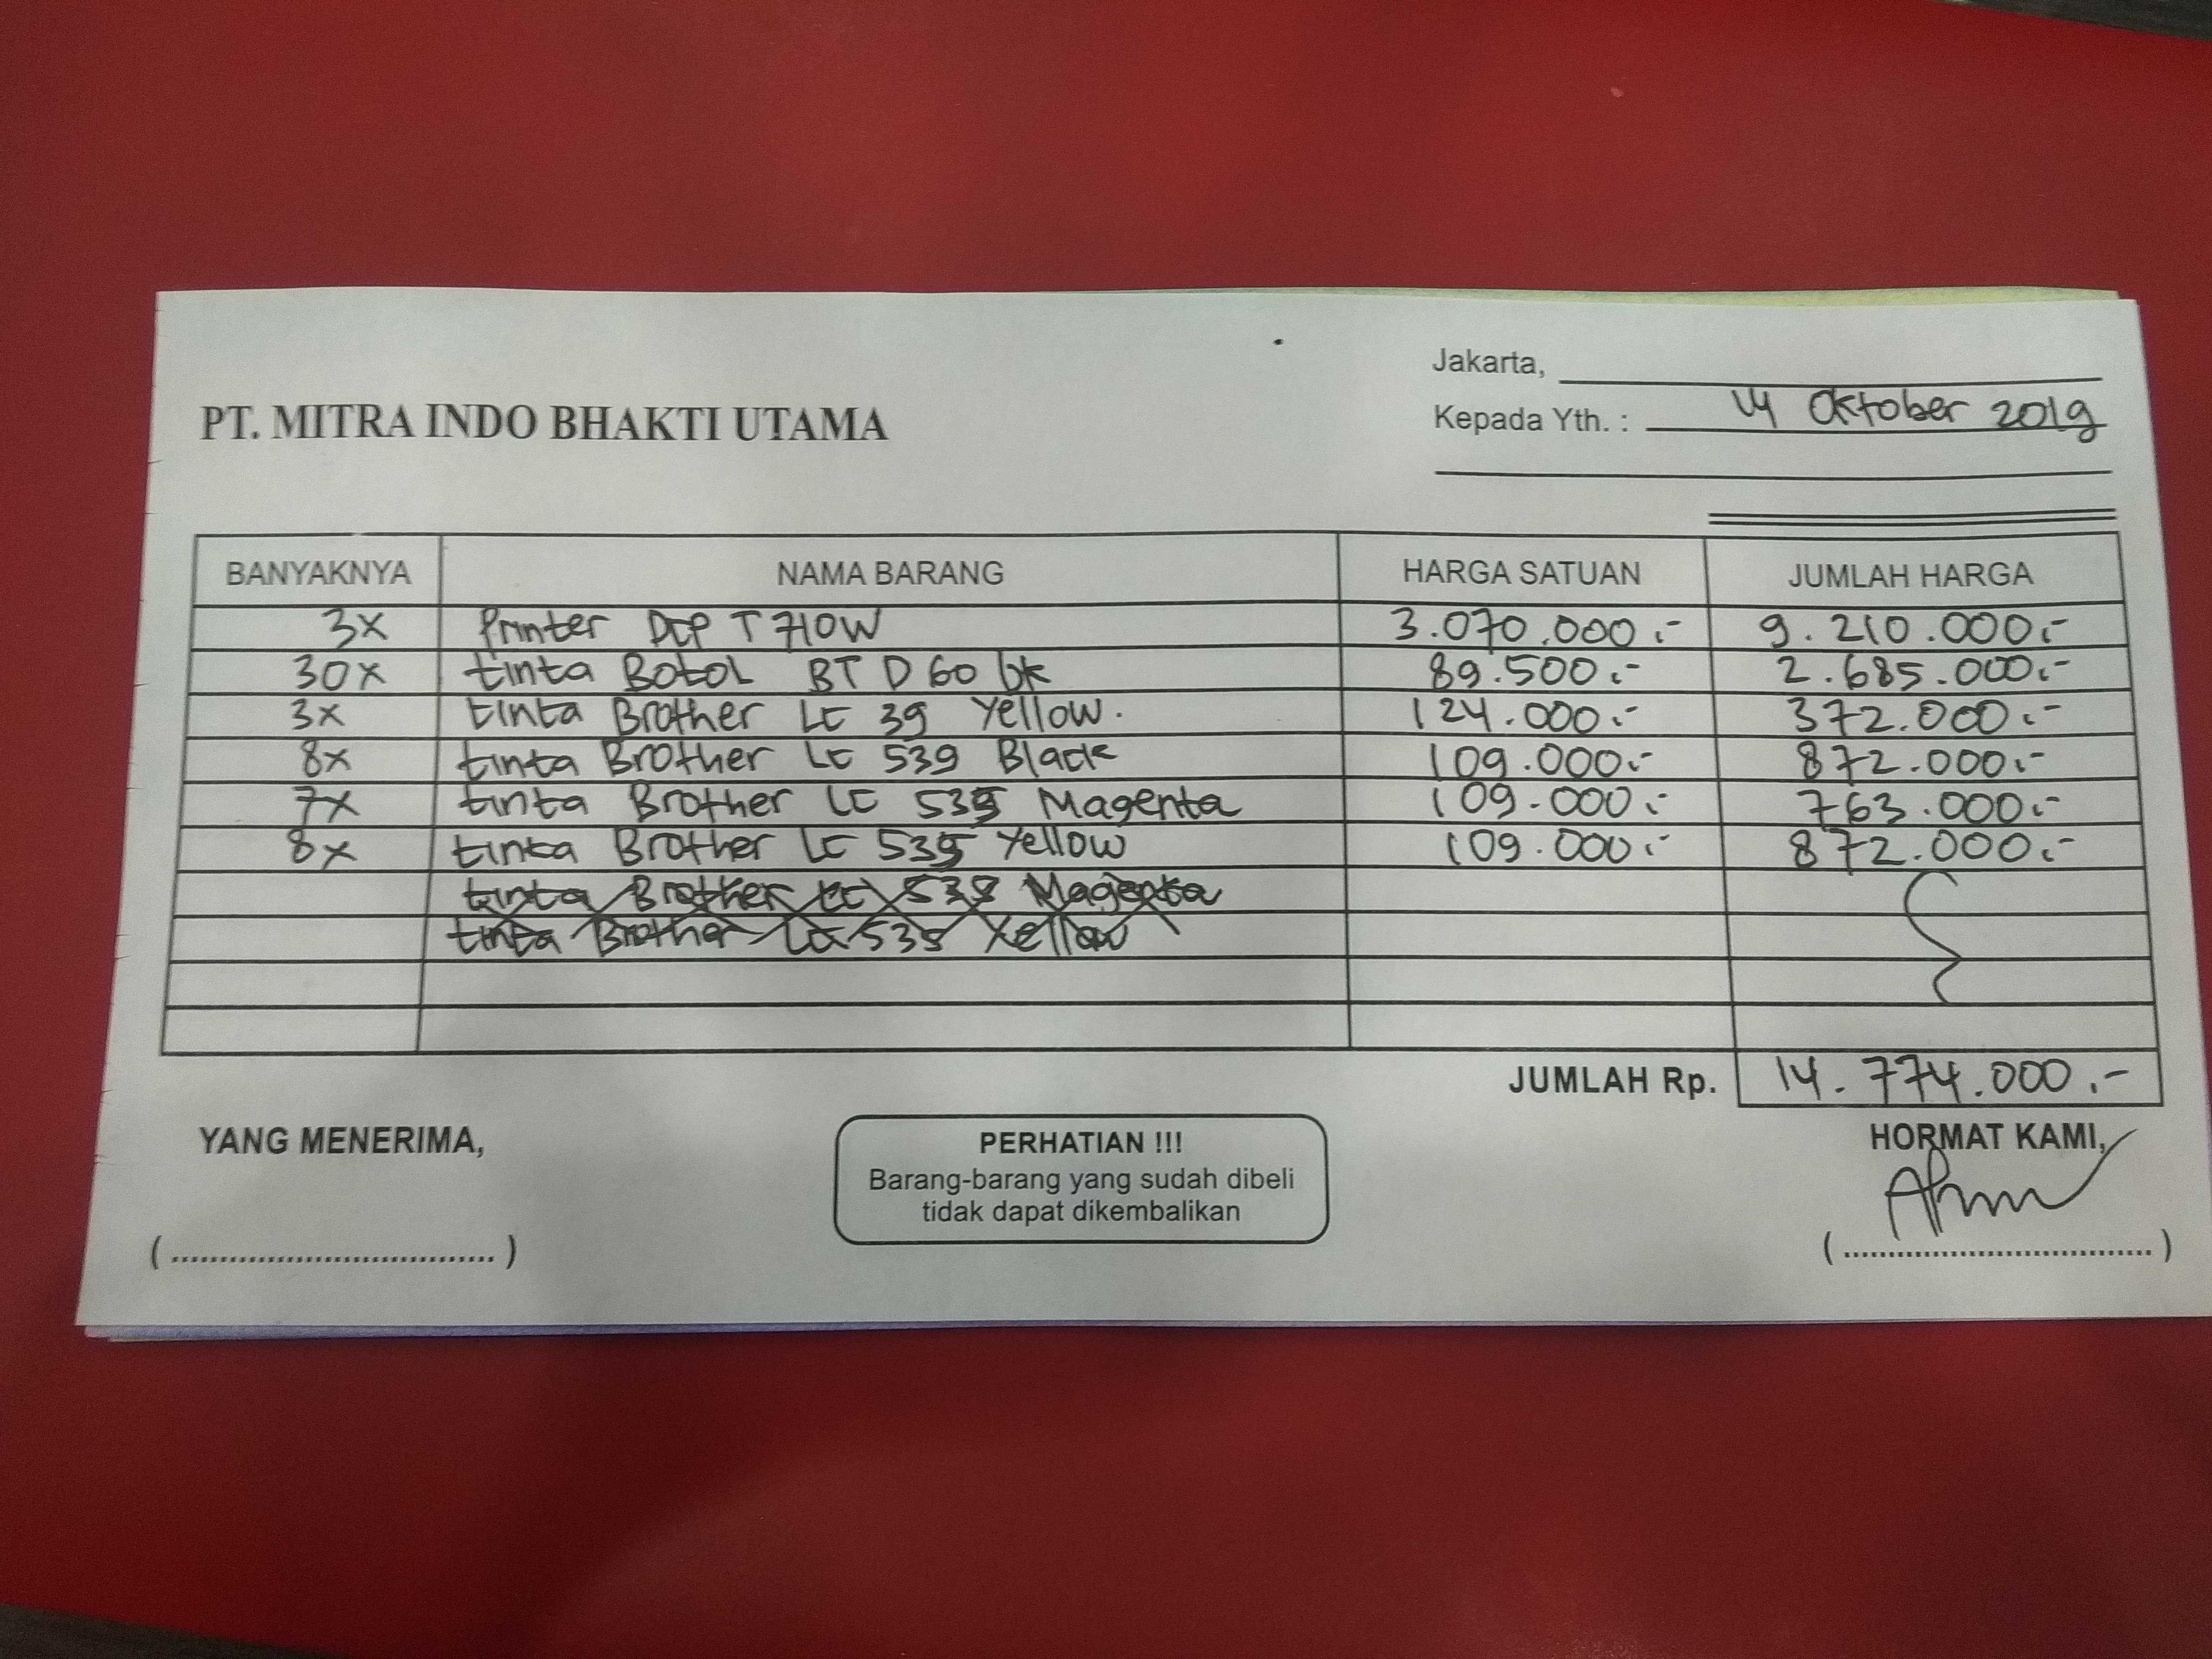 Jakarta,
PT. MITRA INDO BHAKTI UTAMA
Kepada Yth. : 14 Oktober 2019
BANYAKNYA NAMA BARANG HARGA SATUAN JUMLAH HARGA
3x Printer DCP T 710W 3.070.000.- 9.210.000.-
30x tinta Botol BT D 60 bk 89.500.- 2.685.000.-
3x tinta Brother LC 39 Yellow. 124.000.- 372.000.-
8x tinta Brother LC 539 Black 109.000.- 872.000.-
7x tinta Brother LC 535 Magenta 109.000.- 763.000.-
8x tinta Brother LC 535 Yellow 109.000.- 872.000.-
tinta Brother LC 538 Magenta
tinta Brother LC 535 Yellow
JUMLAH Rp. 14.774.000.-
YANG MENERIMA, PERHATIAN !!! HORMAT KAMI,
Barang-barang yang sudah dibeli
tidak dapat dikembalikan
(..................................) (..................................)